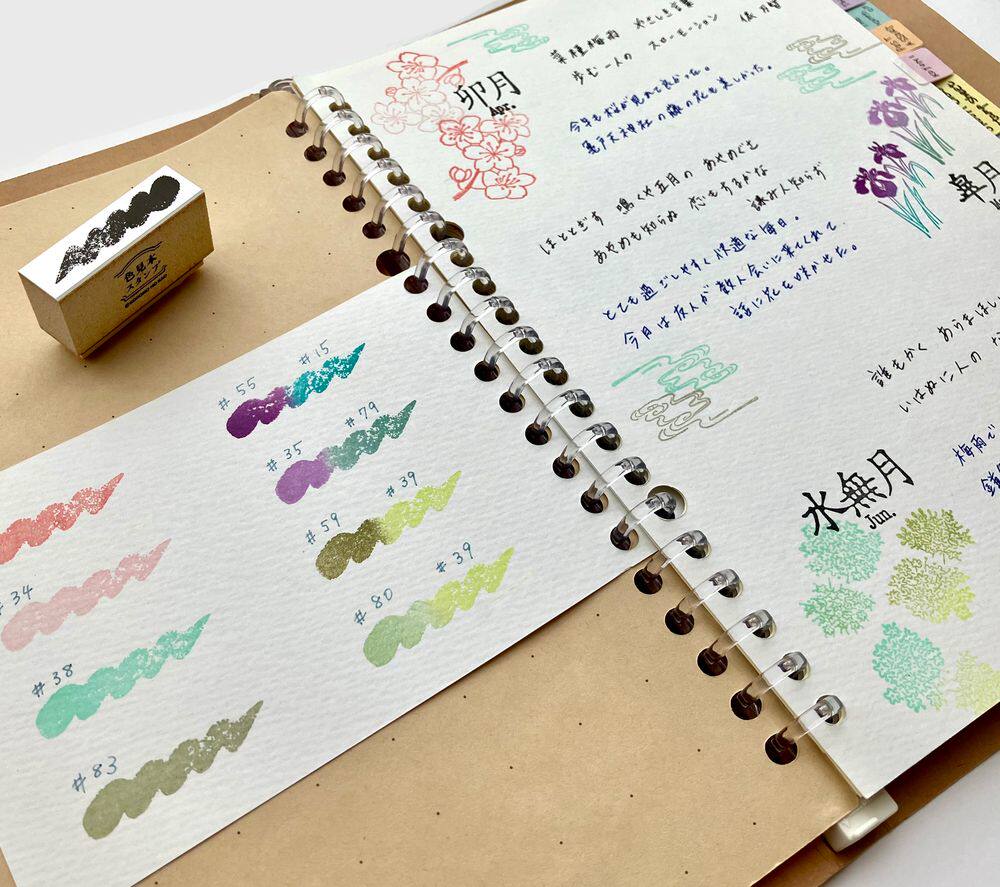 色見本
スタンプ
#55 #15
#35 #79
#59 #39
#80 #39
#34
#38
#83
卯月
Apr.
菜種梅雨 やさしき言葉
歩む一人の スローモーション 俵万智
今年も桜が見れて良かった。
亀戸天神社の藤の花も美しかった。
皐月
ほととぎす 鳴くや五月の あやめぐさ
あやめも知らぬ 恋もするかな 読み人知らず
とても過ごしやすく快適な毎日。
今月は友人が数人会いに来てくれて
話に花を咲かせた。
水無月
Jun.
誰もかく あらまほし
いはぬに人の
梅雨で